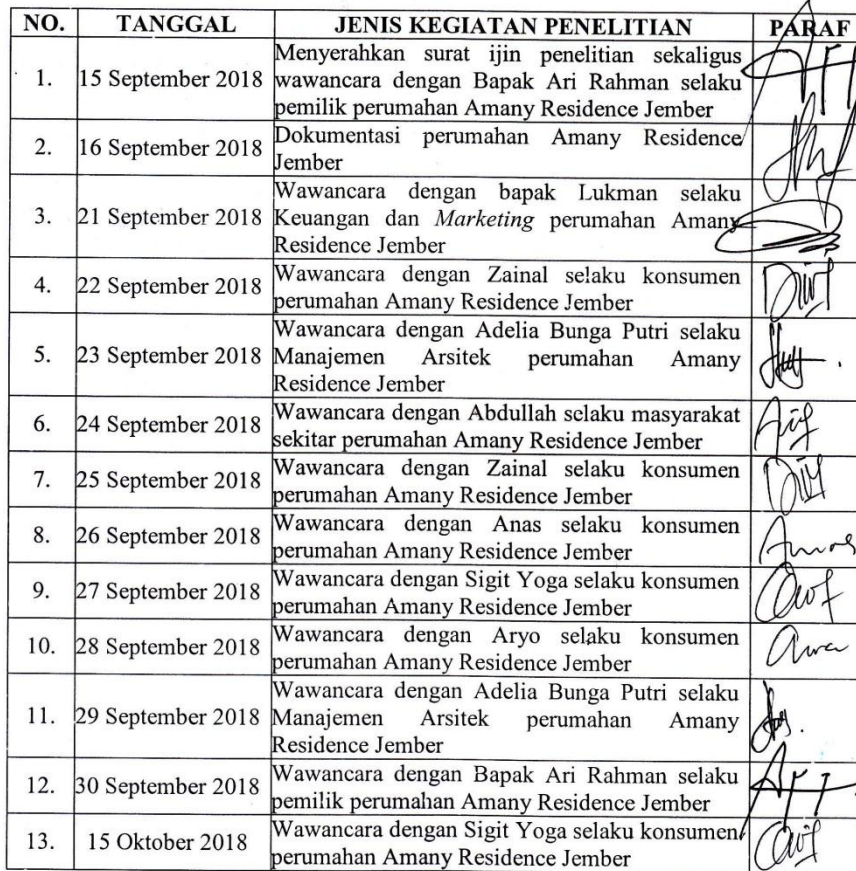 NO. TANGGAL JENIS KEGIATAN PENELITIAN PARAF
Menyerahkan surat ijin penelitian sekaligus
1. 15 September 2018 wawancara dengan Bapak Ari Rahman selaku
pemilik perumahan Amany Residence Jember
2. 16 September 2018 Dokumentasi perumahan Amany Residence
Jember
Wawancara dengan bapak Lukman selaku
3. 21 September 2018 Keuangan dan Marketing perumahan Amany
Residence Jember
4. 22 September 2018 Wawancara dengan Zainal selaku konsumen
perumahan Amany Residence Jember
Wawancara dengan Adelia Bunga Putri selaku
5. 23 September 2018 Manajemen Arsitek perumahan Amany
Residence Jember
6. 24 September 2018 Wawancara dengan Abdullah selaku masyarakat
sekitar perumahan Amany Residence Jember
7. 25 September 2018 Wawancara dengan Zainal selaku konsumen
perumahan Amany Residence Jember
8. 26 September 2018 Wawancara dengan Anas selaku konsumen
perumahan Amany Residence Jember
9. 27 September 2018 Wawancara dengan Sigit Yoga selaku konsumen
perumahan Amany Residence Jember
10. 28 September 2018 Wawancara dengan Aryo selaku konsumen
perumahan Amany Residence Jember
Wawancara dengan Adelia Bunga Putri selaku
11. 29 September 2018 Manajemen Arsitek perumahan Amany
Residence Jember
12. 30 September 2018 Wawancara dengan Bapak Ari Rahman selaku
pemilik perumahan Amany Residence Jember
13. 15 Oktober 2018 Wawancara dengan Sigit Yoga selaku konsumen
perumahan Amany Residence Jember